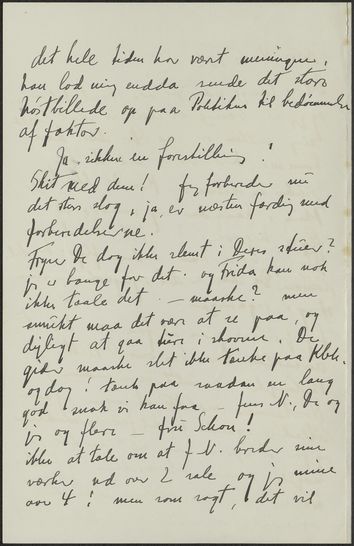 det hele tiden har været meningen,
han lod mig endda sende det store
høstbillede op paa Politiken til bedømmelse
af faktor.
Ja, sikken en forestilling!
Skit med dem! jeg forbereder nu
det store slag, ja, er næsten færdig med
forberedelserne.
Fryser De dog ikke slemt i Deres stuer?
jeg er bange for det. og Frida kan nok
ikke taale det. — maaske? men
smukt maa det være at se paa, og
dejligt at gaa ture i skovene. De
gider maaske slet ikke tænke paa Kbh.
og dog! tænk paa saadan en lang
god snak vi kan faa — Jens N., De og
jeg og flere — fru Schou!
ikke at tale om at J.N. breder sine
værker ud over 2 sale og jeg mine
over 4! men som sagt, det vil